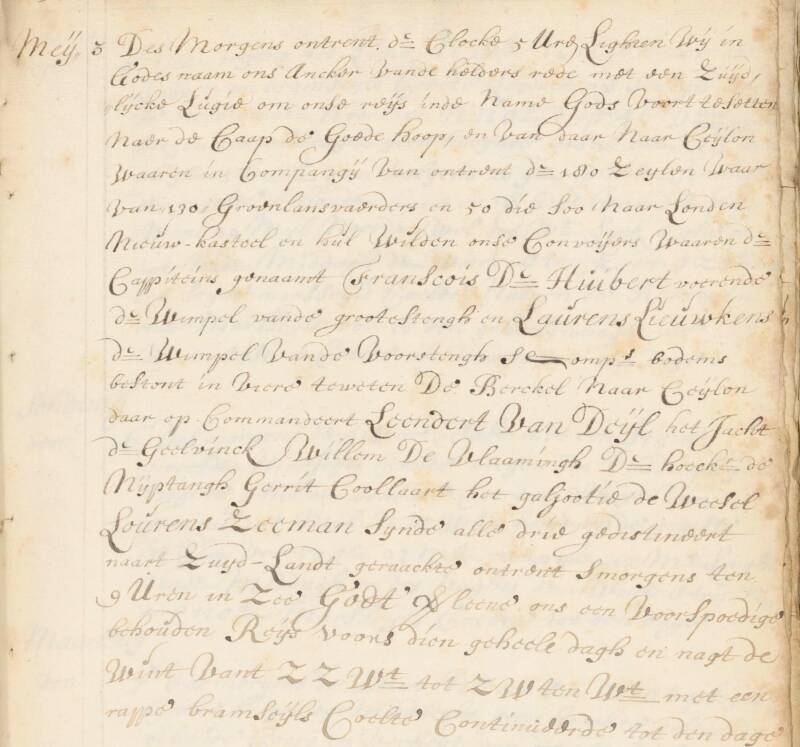 Meÿ 3 Des Morgens ontrent de Clocke 5 Ure Lighten Wÿ in
Godes naam ons Ancker vande helders rede met een Zuÿd,
lÿcke Lugie om onse reÿs inde Name Gods voort tesetten
Naer de Caap de Goede hoop, en van daar Naar Ceÿlon
Waaren in Compangÿ van ontrent de 180 Zeylen Waar
van 130 Groenlansvaerders en 50 die soo Naar Londen
Nieuw-kasteel en hul Wilden onse Convoÿers Waaren de
Cappiteins genaamt Franscois De Huibert voerende
de Wimpel vande grootestengh en Laurens Lieuwkens
de Wimpel Vande Voorstengh s Comps bodems
bestont in viere teweten De Berckel Naar Ceÿlon
daar op Commandeert Leendert Van Deÿl het Jacht
de Geelvinck Willem De Vlaamingh De hoecker de
Nÿptangh Gerrit Coollaart het galjootie de Weesel
Lourens Zeeman Synde alle drie gedistineert
naart Zuÿd-Landt geraackte ontrent smorgens ten
9 Uren in Zee Godt Vleene ons een Voorspoedige
behouden Reÿs voors dien geheele dagh en nagt de
Wint Vant ZZWt tot ZW ten Wt met een
rappe bramseÿls Coelte Continueerde tot den dage